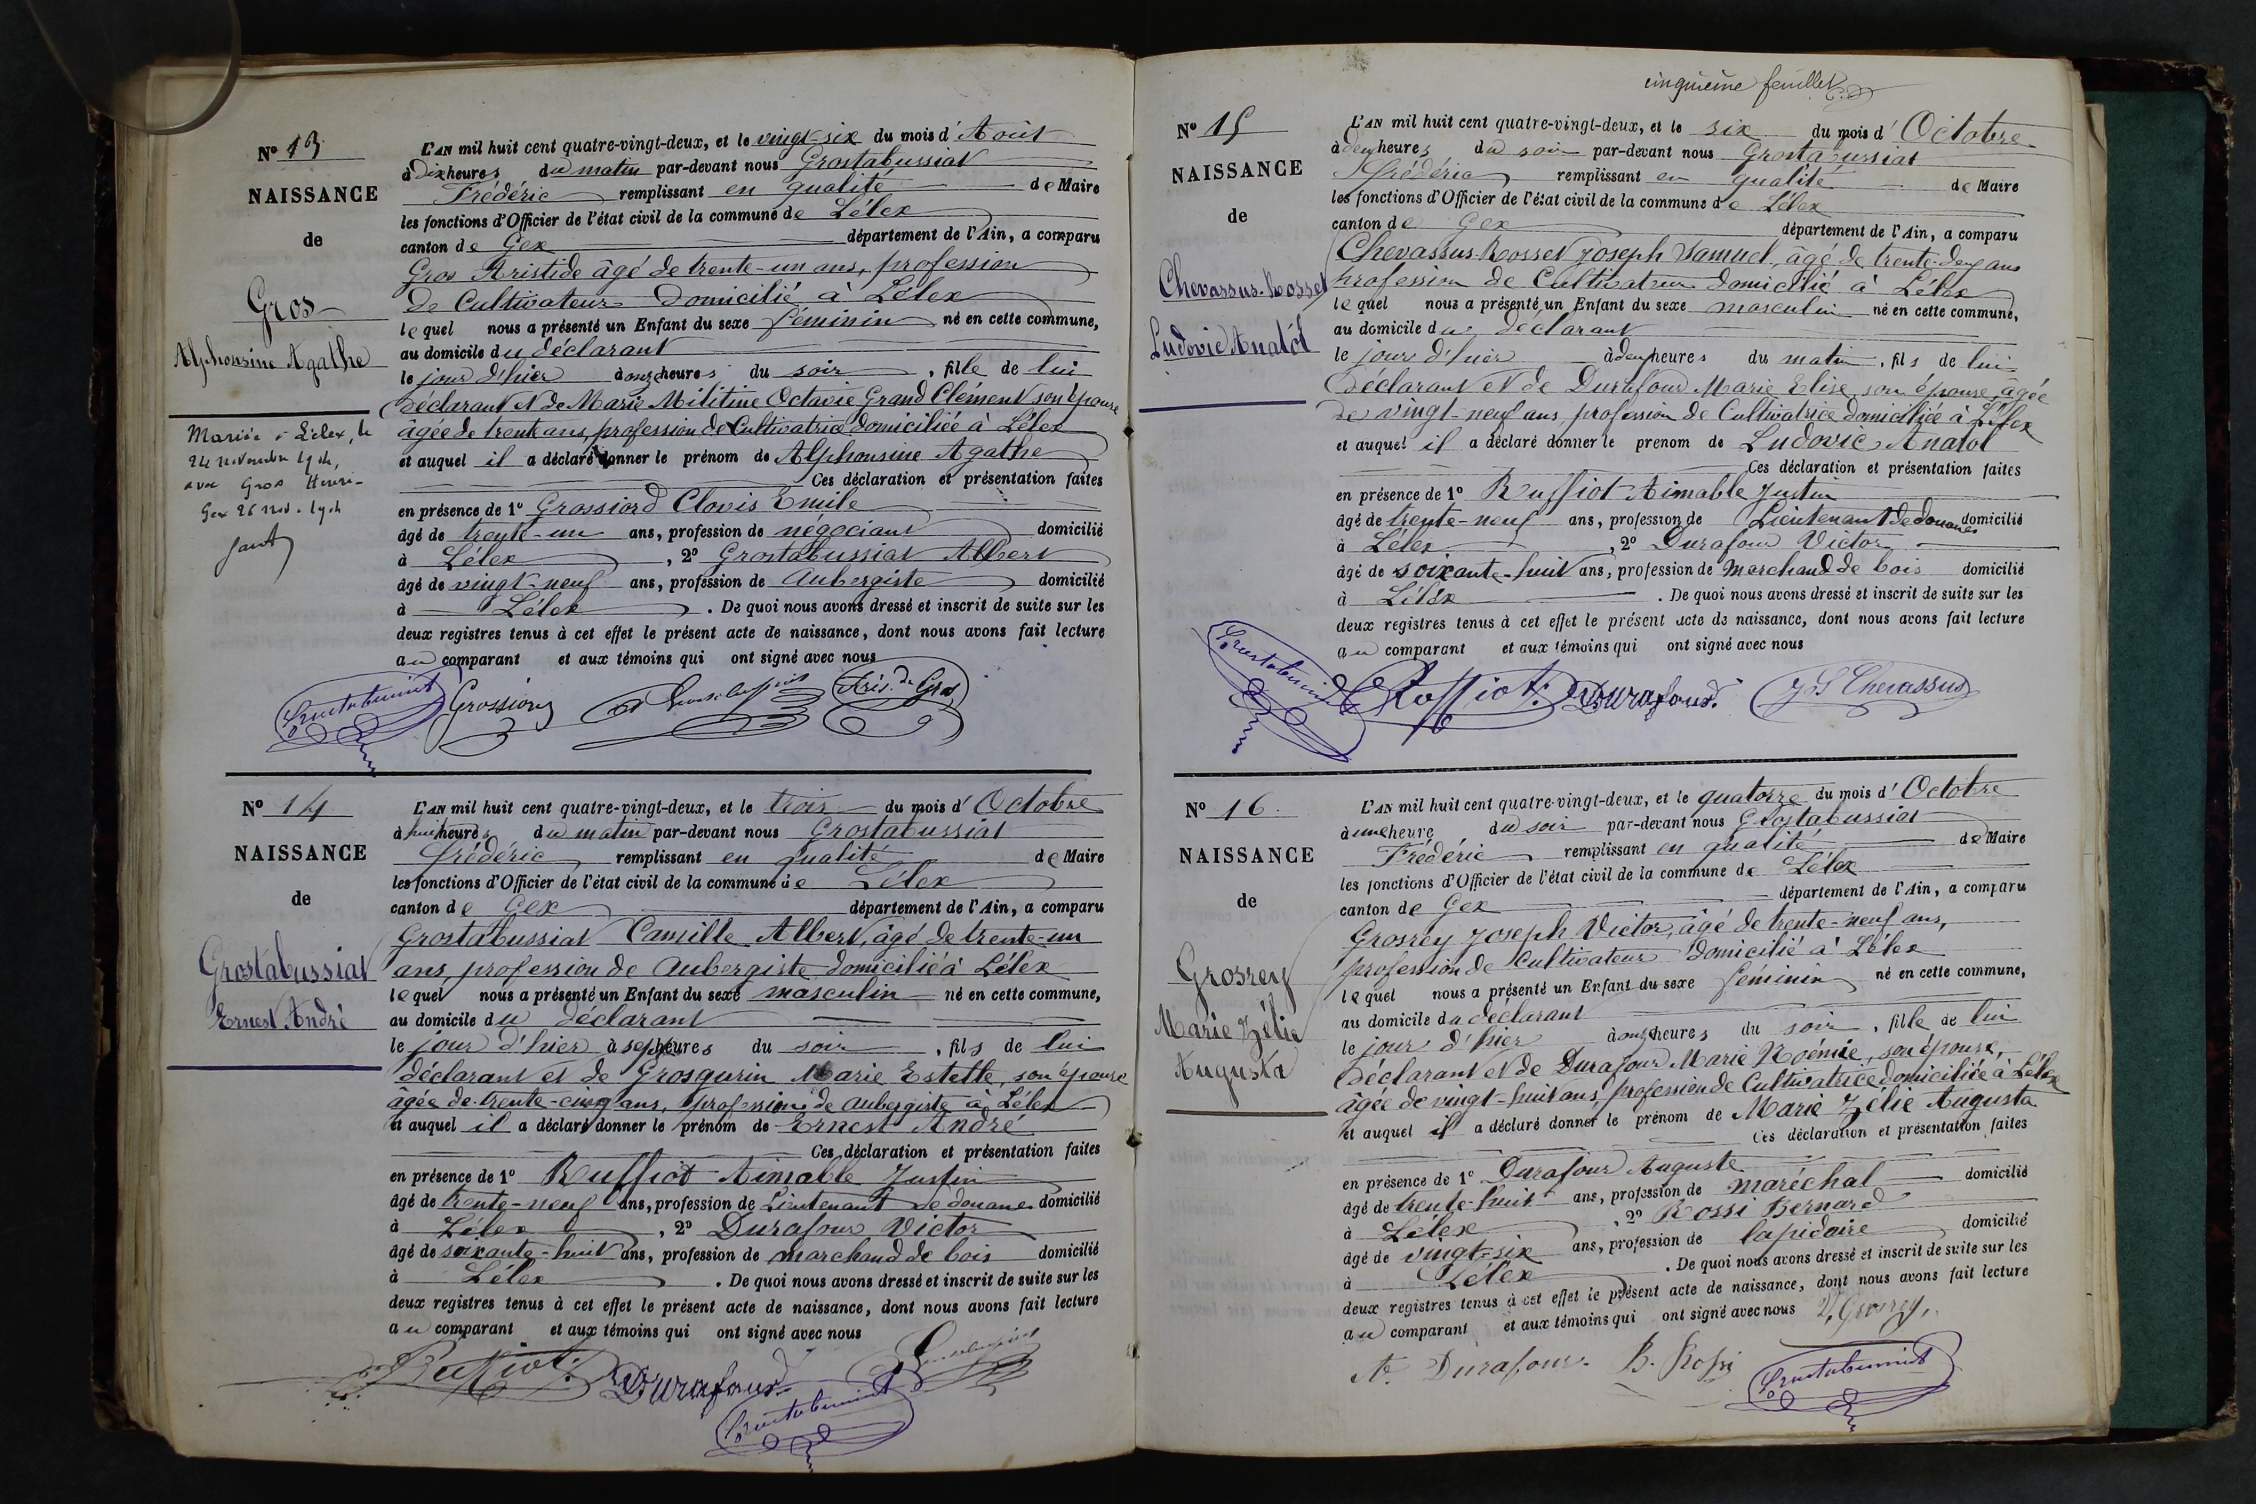 N° 13
NAISSANCE
de
Gros
Alphonsine Agathe
Mariée à Lélex, le
24 novembre 1904,
avec Gros Henri-
Gex 26 nov. 1904
L'AN mil huit cent quatre-vingt-deux, et le vingt-six du mois d'Août
à Dix heures du matin par-devant nous Grostabussiat
Frédéric remplissant en qualité de Maire
les fonctions d'Officier de l'état civil de la commune de Lélex
canton de Gex département de l'Ain, a comparu
Gros Aristide âgé de trente-un ans, profession
de Cultivateur domicilié à Lélex
lequel nous a présenté un Enfant du sexe féminin né en cette commune,
au domicile du déclarant
le jour d'hier à onze heures du soir, fille de lui
déclarant et de Marie Militine Octavie Grand Clément son épouse
âgée de trente ans, profession de Cultivatrice domiciliée à Lélex
et auquel il a déclaré donner le prénom de Alphonsine Agathe
Ces déclaration et présentation faites
en présence de 1° Grossiord Clovis Emile
âgé de trente-un ans, profession de négociant domicilié
à Lélex, 2° Grostabussiat Albert
âgé de vingt-neuf ans, profession de Aubergiste domicilié
à Lélex. De quoi nous avons dressé et inscrit de suite sur les
deux registres tenus à cet effet le présent acte de naissance, dont nous avons fait lecture
au comparant et aux témoins qui ont signé avec nous
Grostabussiat Grossiord Aris. de Gros
N° 14
NAISSANCE
de
Grostabussiat
Ernest André
L'AN mil huit cent quatre-vingt-deux, et le trois du mois d'Octobre
à huit heures du matin par-devant nous Grostabussiat
Frédéric remplissant en qualité de Maire
les fonctions d'Officier de l'état civil de la commune de Lélex
canton de Gex département de l'Ain, a comparu
Grostabussiat Camille Albert, âgé de trente-un
ans, profession de Aubergiste domicilié à Lélex
lequel nous a présenté un Enfant du sexe masculin né en cette commune,
au domicile du déclarant
le jour d'hier à sept heures du soir, fils de lui
déclarant et de Grosgurin Marie Estelle, son épouse
agée de trente-cinq ans, profession de aubergiste à Lélex
et auquel il a déclaré donner le prénom de Ernest André
Ces déclaration et présentation faites
en présence de 1° Ruffiot Aimable Justin
âgé de trente-neuf ans, profession de Lieutenant de douanes domicilié
à Lélex, 2° Durafour Victor
âgé de soixante-huit ans, profession de marchand de bois domicilié
à Lélex. De quoi nous avons dressé et inscrit de suite sur les
deux registres tenus à cet effet le présent acte de naissance, dont nous avons fait lecture
au comparant et aux témoins qui ont signé avec nous
Ruffiot Durafour
Grostabussiat
cinquième feuillet
N° 15
NAISSANCE
de
Chevassus-Rosset
Ludovic Anatol
L'AN mil huit cent quatre-vingt-deux, et le six du mois d'Octobre
à deux heures du soir par-devant nous Grostabussiat
Frédéric remplissant en qualité de Maire
les fonctions d'Officier de l'état civil de la commune de Lélex
canton de Gex département de l'Ain, a comparu
Chevassus-Rosset Joseph Samuel, âgé de trente-deux ans
profession de Cultivateur domicilié à Lélex
lequel nous a présenté un Enfant du sexe masculin né en cette commune,
au domicile du déclarant
le jour d'hier à deux heures du matin, fils de lui
déclarant et de Durafour Marie Elise, son épouse, âgée
de vingt-neuf ans, profession de Cultivatrice domiciliée à Lélex
et auquel il a déclaré donner le prenom de Ludovic Anatol
Ces déclaration et présentation faites
en présence de 1° Ruffiot Aimable Justin
âgé de trente-neuf ans, profession de Lieutenant de douanes domicilié
à Lélex, 2° Durafour Victor
âgé de soixante-huit ans, profession de Marchand de bois domicilié
à Lélex. De quoi nous avons dressé et inscrit de suite sur les
deux registres tenus à cet effet le présent acte de naissance, dont nous avons fait lecture
au comparant et aux témoins qui ont signé avec nous
Grostabussiat Ruffiot Durafour J S Chevassus
N° 16
NAISSANCE
de
Grosrey
Marie Zélie
Augusta
L'AN mil huit cent quatre-vingt-deux, et le quatorze du mois d'Octobre
à une heure du soir par-devant nous Grostabussiat
Frédéric remplissant en qualité de Maire
les fonctions d'Officier de l'état civil de la commune de Lélex
canton de Gex département de l'Ain, a comparu
Grosrey Joseph Victor, âgé de trente-neuf ans,
profession de Cultivateur domicilié à Lélex
lequel nous a présenté un Enfant du sexe féminin né en cette commune,
au domicile du déclarant
le jour d'hier à onze heures du soir, fille de lui
déclarant et de Durafour Marie Noémie, son épouse,
âgée de vingt-huit ans, profession de Cultivatrice domiciliée à Lélex
et auquel il a déclaré donner le prénom de Marie Zélie Augusta
Ces déclaration et présentation faites
en présence de 1° Durafour Auguste
âgé de trente-huit ans, profession de maréchal domicilié
à Lélex, 2° Rossi Bernard
âgé de vingt-six ans, profession de lapidaire domicilié
à Lélex. De quoi nous avons dressé et inscrit de suite sur les
deux registres tenus à cet effet le présent acte de naissance, dont nous avons fait lecture
au comparant et aux témoins qui ont signé avec nous V. Grosrey.
A. Durafour. B. Rossi Grostabussiat